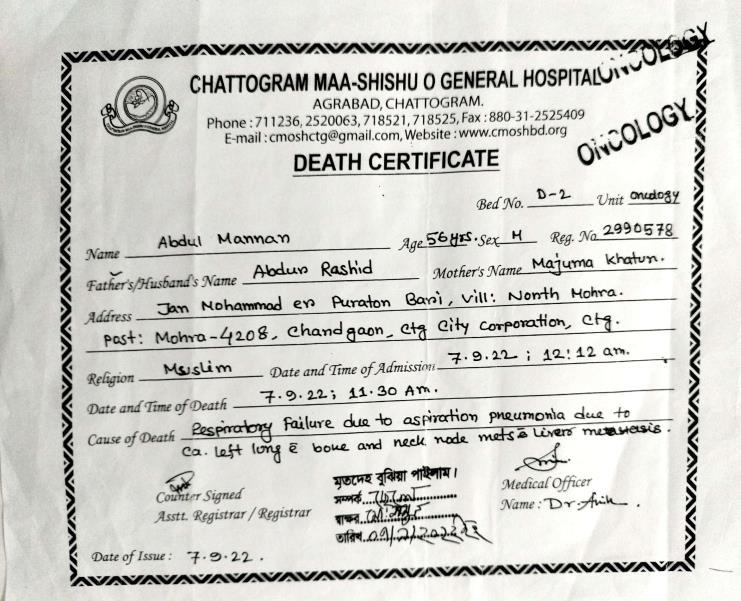 CHATTOGRAM MAA-SHISHU O GENERAL HOSPITAL ONCOLOGY
AGRABAD, CHATTOGRAM.
Phone : 711236, 2520063, 718521, 718525, Fax : 880-31-2525409
E-mail : cmoshctg@gmail.com, Website : www.cmoshbd.org
ONCOLOGY
DEATH CERTIFICATE
Bed No. D-2 Unit oncology
Name Abdul Mannan Age 56 yrs. Sex M Reg. No. 2990578
Father's/Husband's Name Abdur Rashid Mother's Name Majuma Khatun.
Address Jan Mohammad er Puraton Bari, Vill: North Mohra.
post: Mohra-4208, Chandgaon, Ctg City Corporation, Ctg.
Religion Muslim Date and Time of Admission 7.9.22 ; 12:12 am.
Date and Time of Death 7.9.22 ; 11.30 Am.
Cause of Death Respiratory Failure due to aspiration pneumonia due to
Ca. left lung c̄ bone and neck node mets c̄ Liver metastasis.
মৃতদেহ বুঝিয়া পাইলাম।
সম্পর্ক
স্বাক্ষর
তারিখ
Counter Signed
Asstt. Registrar / Registrar
Medical Officer
Name : Dr. Anik.
Date of Issue : 7.9.22.